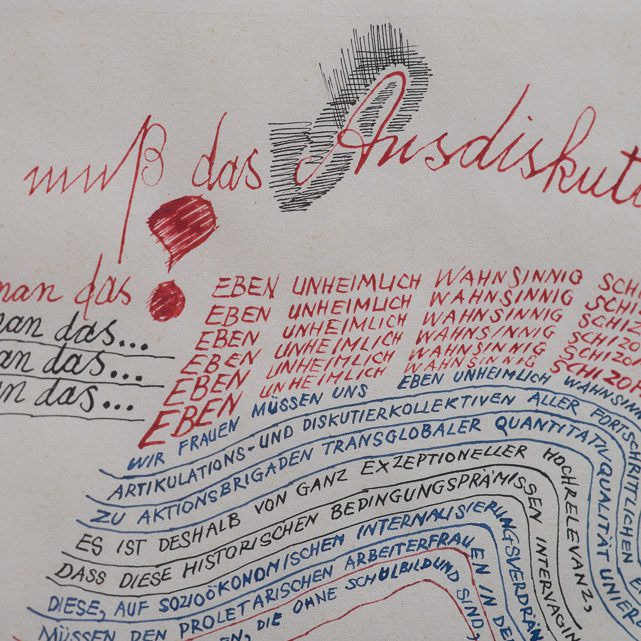 muß das Ausdiskut
man das
man das...
an das...
n das...
EBEN UNHEIMLICH WAHNSINNIG SCHI
EBEN UNHEIMLICH WAHNSINNIG SCHI
EBEN UNHEIMLICH WAHNSINNIG SCHIZO
EBEN UNHEIMLICH WAHNSINNIG SCHIZO
EBEN UNHEIMLICH WAHNSINNIG SCHIZO
EBEN UNHEIMLICH WAHNSINNIG SCHIZO
WIR FRAUEN MÜSSEN UNS EBEN UNHEIMLICH WAHNSINN
ARTIKULATIONS- UND DISKUTIERKOLLEKTIVEN ALLER FORTSCHRITTLICHEN
ZU AKTIONSBRIGADEN TRANSGLOBALER QUANTITATIVQUALITÄT UNIFI
ES IST DESHALB VON GANZ EXZEPTIONELLER HOCHRELEVANZ,
DASS DIESE HISTORISCHEN BEDINGUNGSPRÄMISSEN INTERVAGI
DIESE, AUF SOZIOÖKONOMISCHEN INTERNALISIERUNGSVERDRÄN
MÜSSEN DEN PROLETARISCHEN ARBEITERFRAUEN IN DE
EN, DIE OHNE SCHULBILDUND SIND,